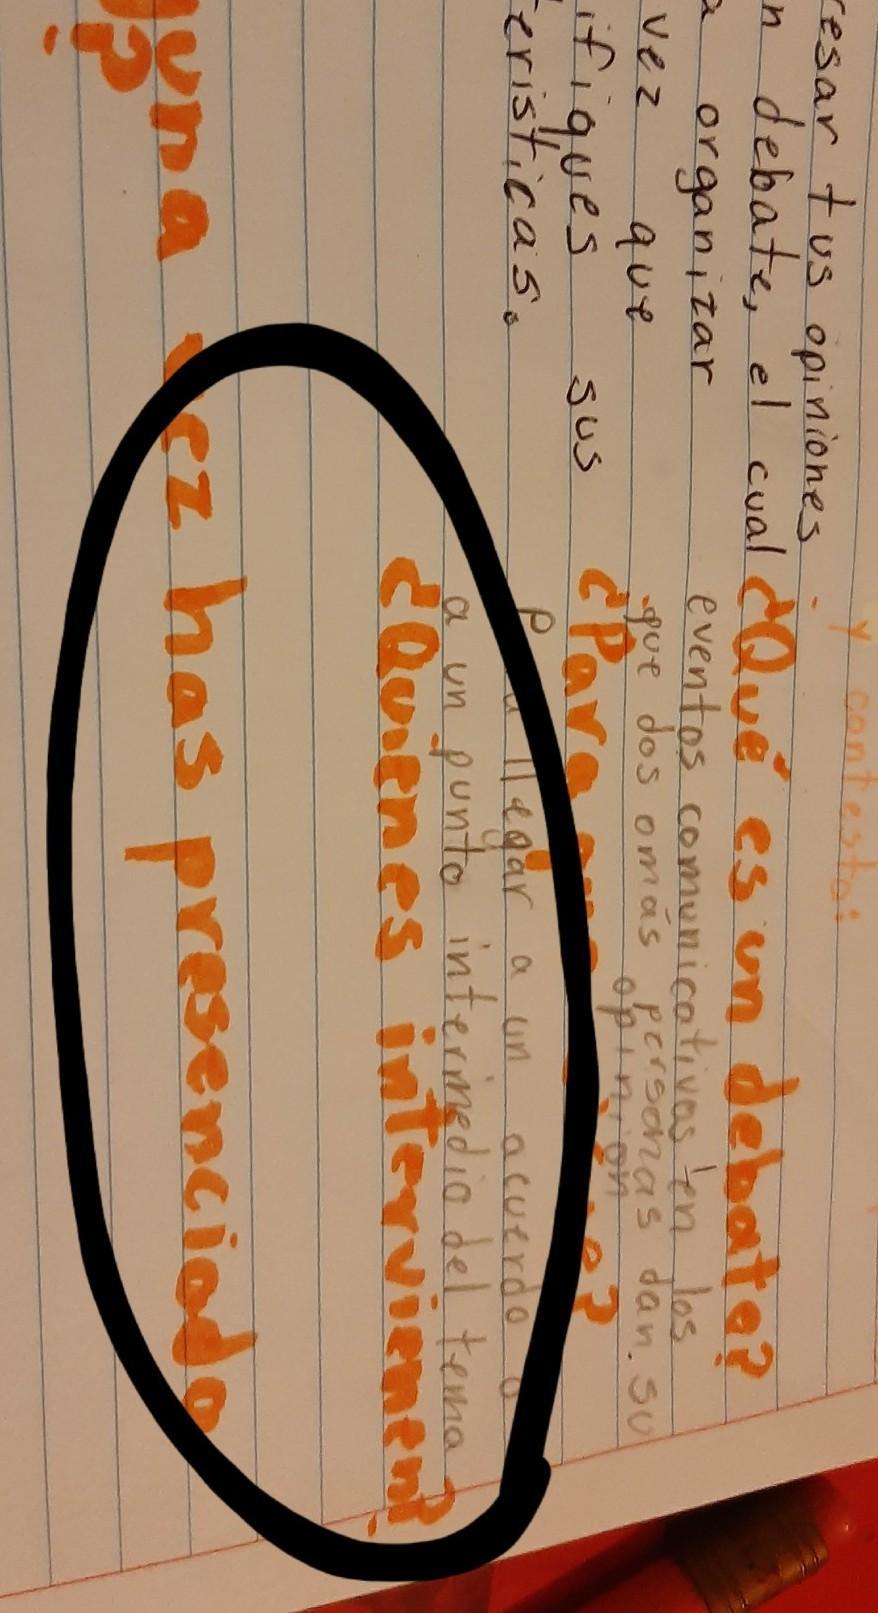 y contesta:
esar tus opiniones
n debate, el cual
¿Qué es un debate?
a organizar
eventos comunicativos en los
vez que
que dos o más personas dan su
opinión
ifiques sus
¿Para
erísticas.
llegar a un acuerdo o
a un punto intermedio del tema
¿Quienes intervienen?
una vez has presenciado
?